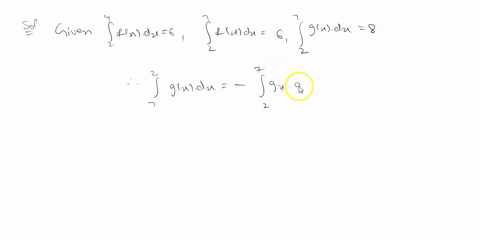 Sol: Given ∫₂⁴ f(x).dx = 6, ∫₂⁷ f(x)dx = 6, ∫₂⁷ g(x).dx = 8.
∴ ∫₇² g(x).dx = - ∫₂⁷ gx.